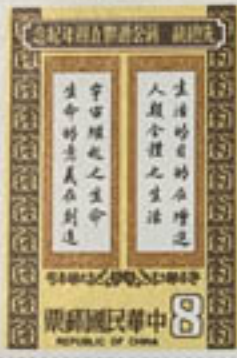 先總統 蔣公逝世五週年紀念
生活的目的在增進
人類全體之生活
生命的意義在創造
宇宙繼起之生命
中華民國郵票
8
REPUBLIC OF CHINA